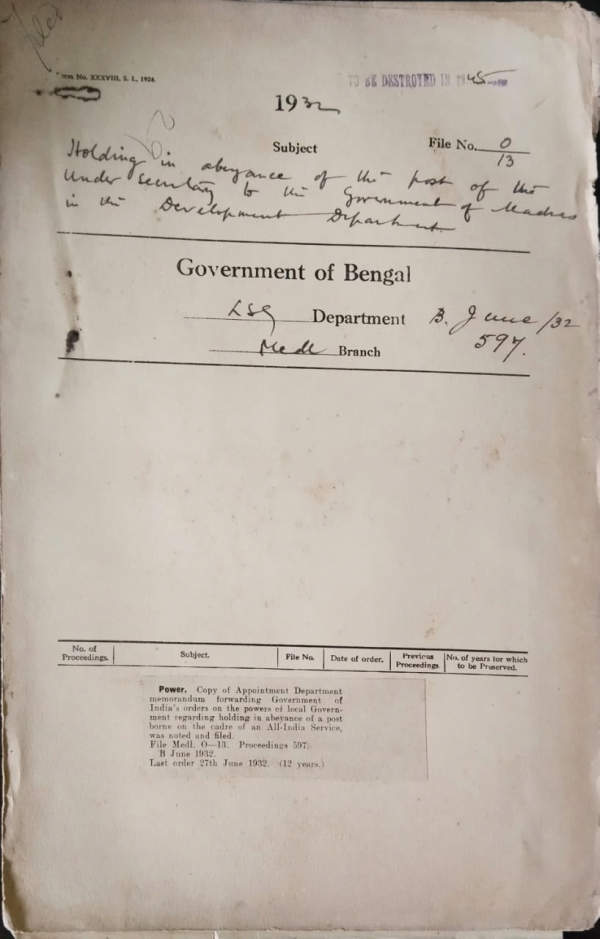 Filed
Form No. XXXVIII, S. I., 1924.
TO BE DESTROYED IN 1945
1932
Subject
File No. O/13
Holding in abeyance of the post of the
Under Secretary to the Government of Madras
in the Development Department
Government of Bengal
LSG Department B. June/32
Medl Branch 597.
No. of Proceedings. Subject. File No. Date of order. Previous Proceedings No. of years for which to be Preserved.
Power. Copy of Appointment Department
memorandum forwarding Government of
India's orders on the powers of local Govern-
ment regarding holding in abeyance of a post
borne on the cadre of an All-India Service,
was noted and filed.
File Medl. O—13. Proceedings 597.
B June 1932.
Last order 27th June 1932. (12 years.)